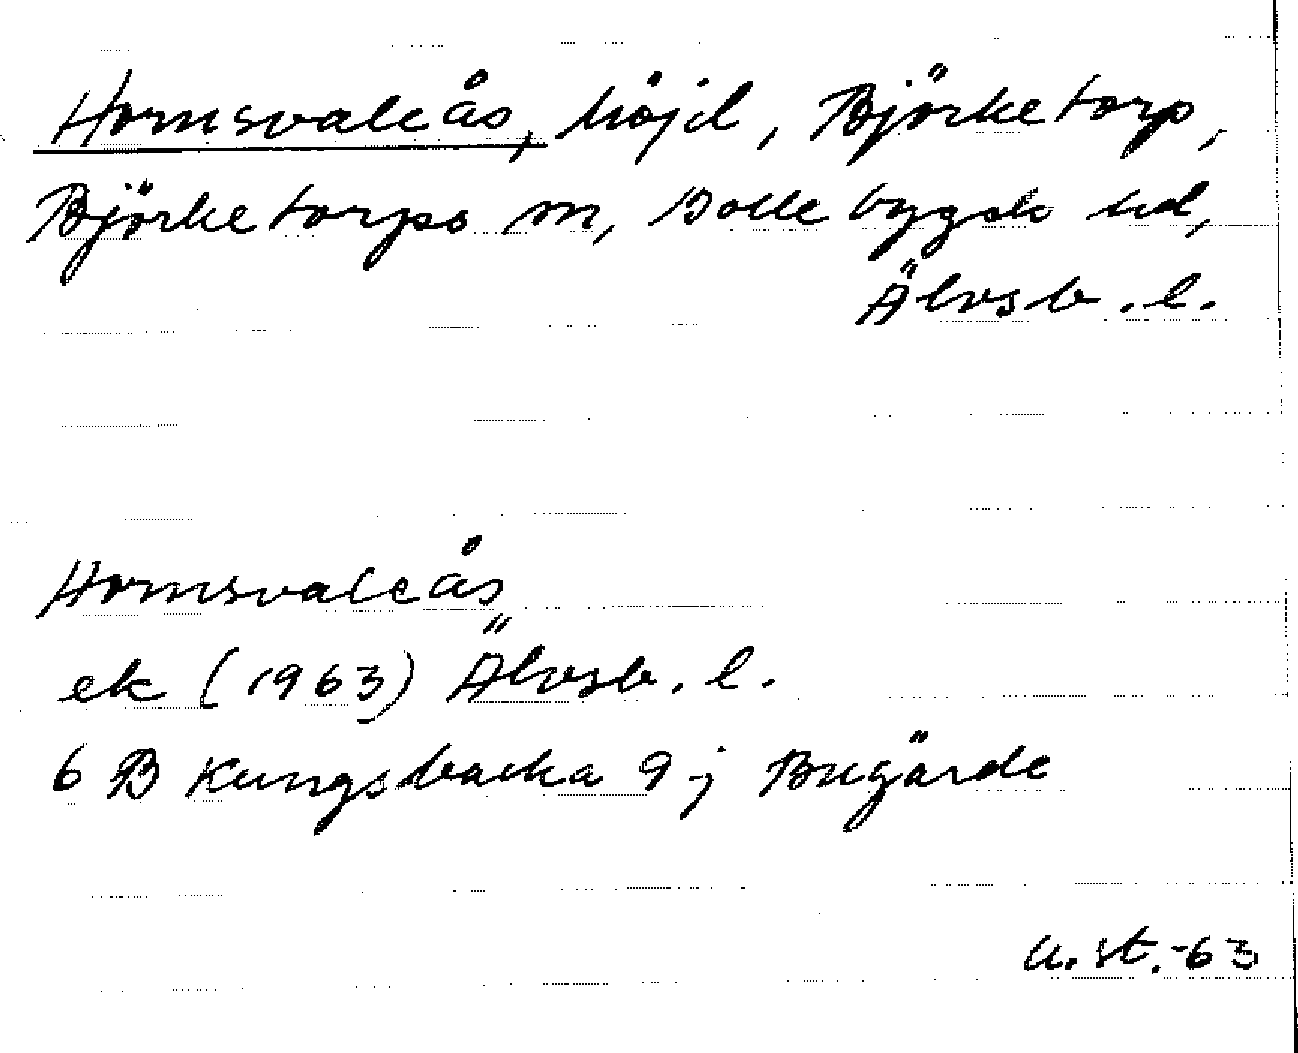 Hornsvaleås, höjd, Björketorp,
Björketorps sn, Bollebygds hd,
Älvsb. l.
Hornsvaleås
ek (1963) Älvsb. l.
6 B Kungsbacka 9 j Bugärde
U. st. -63